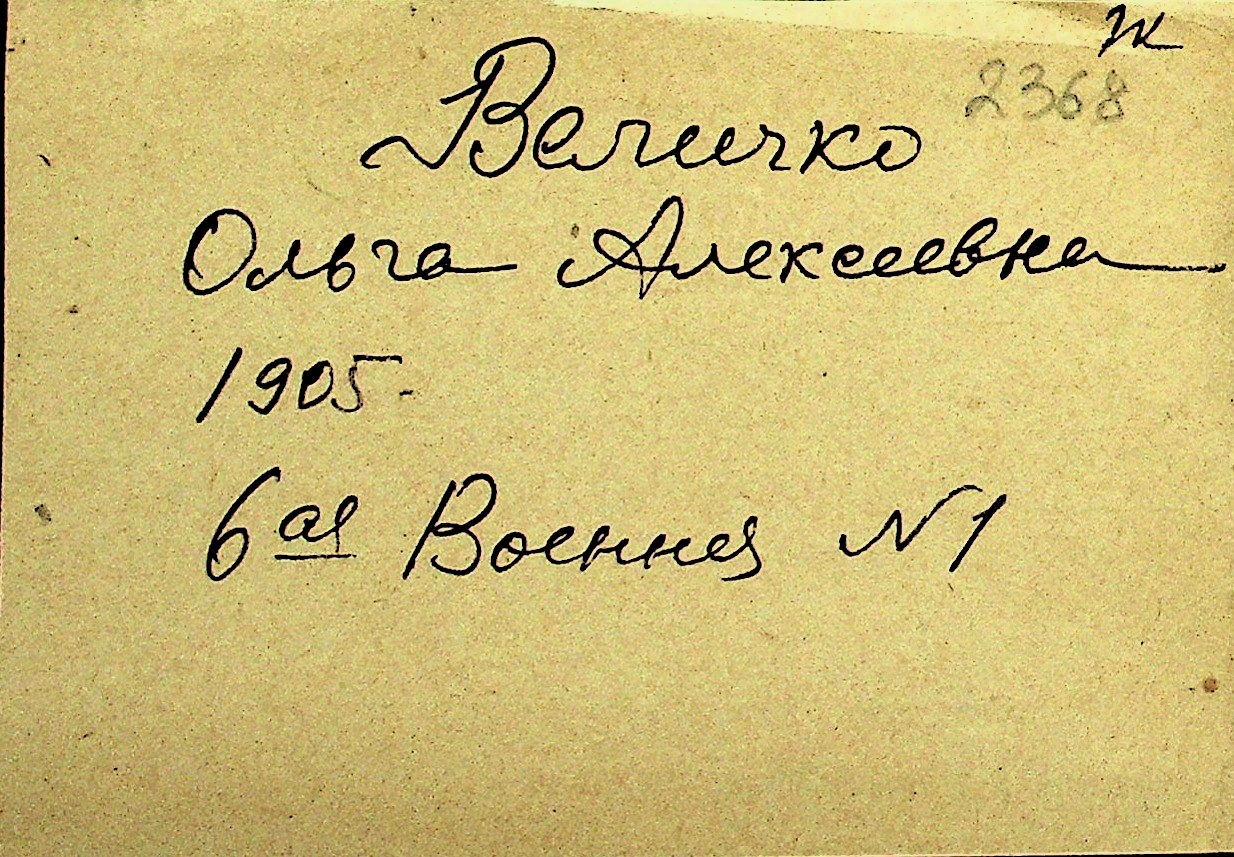 ж
2368
Величко
Ольга Алексеевна
1905-
6ая Военная N1